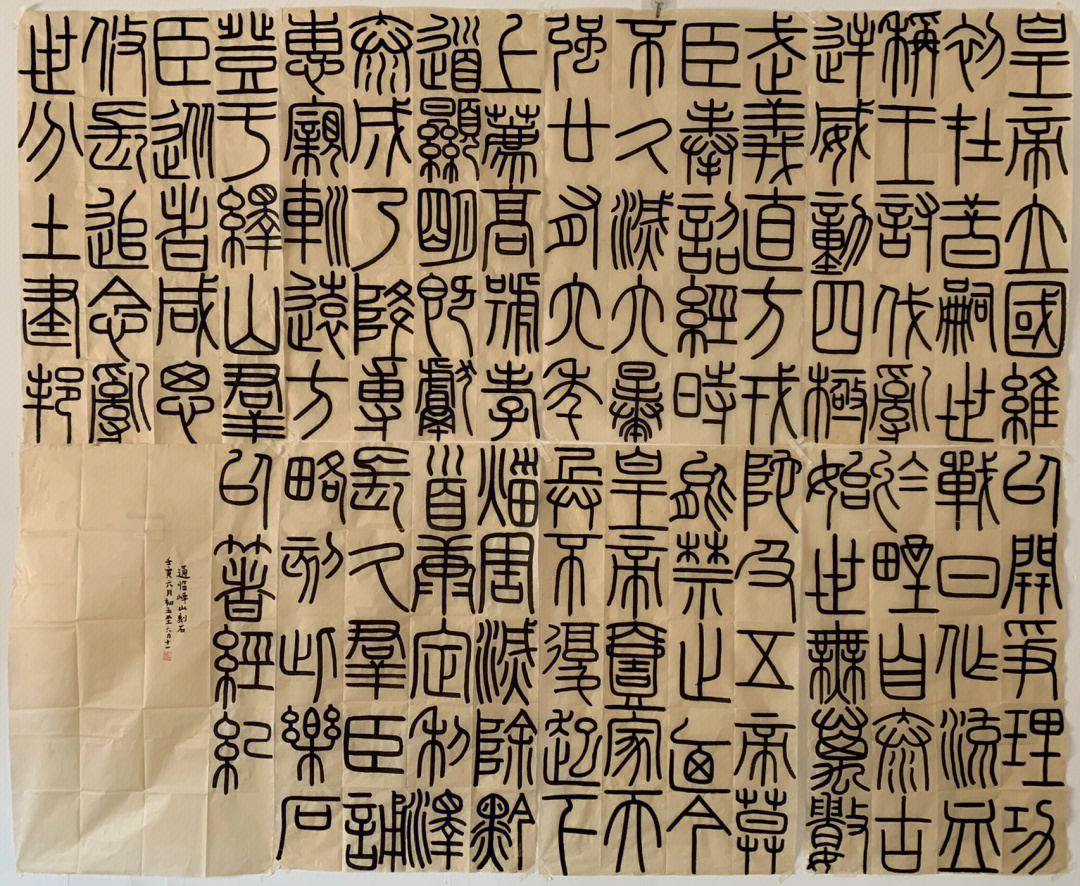 皇帝立國維
初在昔嗣世
稱王討伐亂
逆威動四極
武義直方戎
臣奉詔經時
不久滅六暴
強廿有六年
上薦高號孝
道顯明既獻
泰成乃降專
惠親巡遠方
登于繹山群
臣從者咸思
攸長追念亂
世分土建邦
以開爭理功
戰日作流血
於野自泰古
始世無萬數
陀及五帝莫
能禁止迺今
皇帝壹家天
兵不復起下
災害滅除黔
首康定利澤
長久群臣誦
略刻此樂石
以著經紀
通临峄山刻石
壬寅六月初五至六月十一